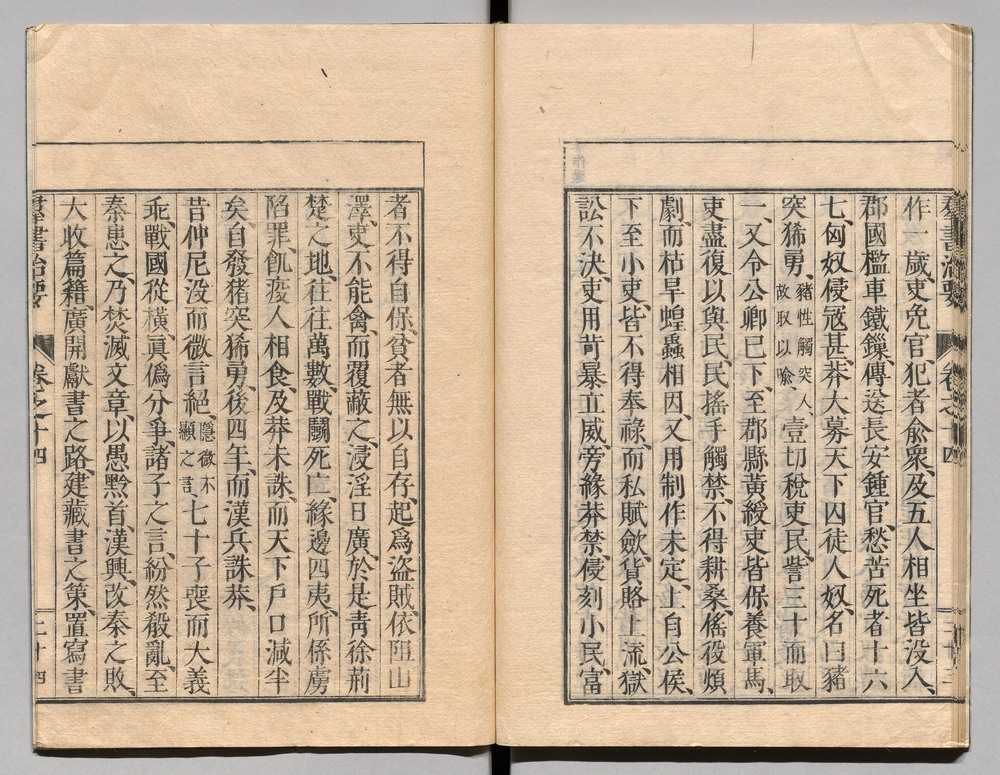 羣書治要 卷之十四
作一歲、吏免官、犯者兪衆、及五人相坐皆没入、
郡國檻車鐵鏁、傳送長安鍾官、愁苦死者十六
七、匈奴侵寇甚、莽大募天下囚徒人奴、名曰豬
突豨勇、豬性觸突人、故取以喩、壹切稅吏民、訾三十而取
一、又令公卿已下、至郡縣、黃綬吏皆保養軍馬、
吏盡復以與民、民搖手觸禁、不得耕桑、傜役煩
劇、而枯旱蝗蟲相因、又用制作未定、上自公侯、
下至小吏、皆不得奉祿、而私賦斂、貨賂上流、獄
訟不決、吏用苛暴立威、旁緣莽禁、侵刻小民、富
者不得自保、貧者無以自存、起爲盜賊、依阻山
澤、吏不能禽、而覆蔽之、浸淫日廣、於是靑徐荊
楚之地、往往萬數、戰鬬死亡、緣邊四夷、所係虜
陷罪、飢疫人相食、及莽未誅、而天下戶口減半
矣、自發猪突豨勇、後四年、而漢兵誅莽、
昔仲尼没而微言絕、隱微不顯之言、七十子喪而大義
乖、戰國從橫、眞僞分爭、諸子之言、紛然殽亂、至
秦患之、乃焚滅文章、以愚黔首、漢興、改秦之敗、
大收篇籍、廣開獻書之路、建藏書之策、置寫書
羣書治要 卷之十四 二十四